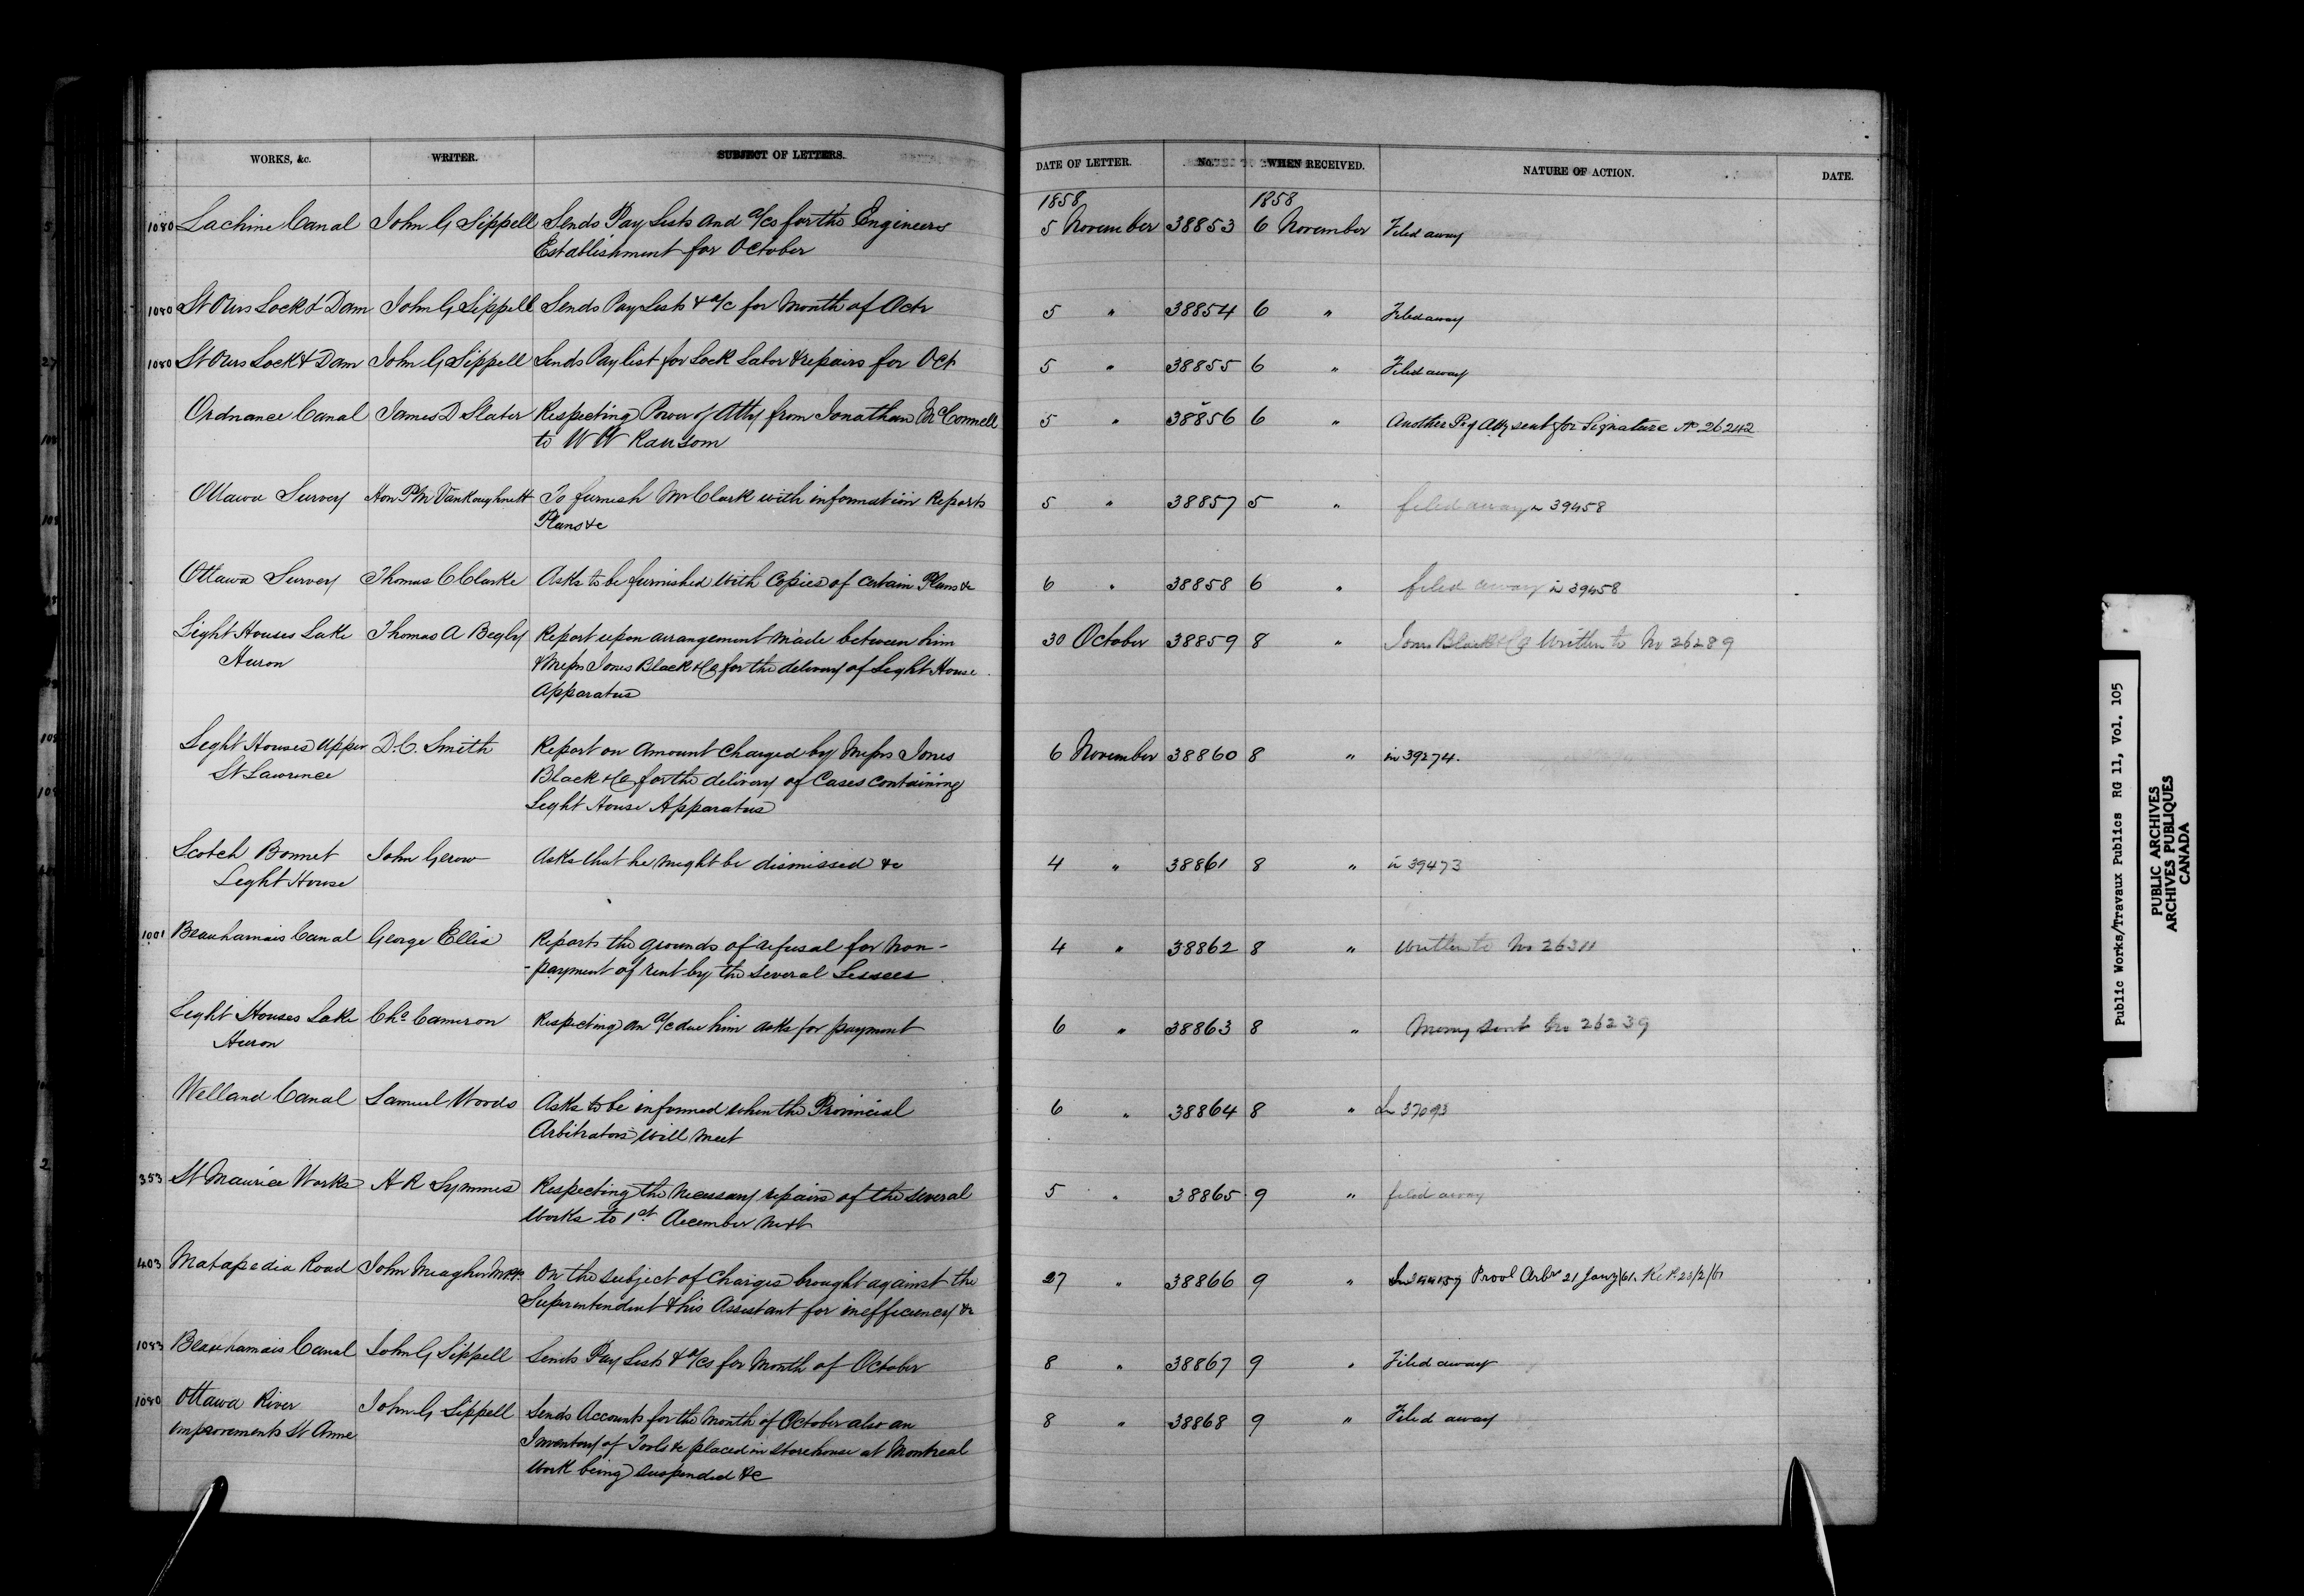 WORKS, &c. WRITER. SUBJECT OF LETTERS. DATE OF LETTER. No. WHEN RECEIVED. NATURE OF ACTION. DATE.
1858 1858
1080 Lachine Canal John G Sippell Sends Pay Lists and a/cs for the Engineers 5 November 38853 6 November Filed away
Establishment for October
1080 St Ours Lock & Dam John G Sippell Sends Pay Lists & a/c for Month of Octr 5 " 38854 6 " Filed away
1080 St Ours Lock & Dam John G Sippell Sends Pay list for Lock Labor & repairs for Oct 5 " 38855 6 " Filed away
Ordnance Canal James D Slater Respecting Power of Atty from Jonathan McConnell 5 " 38856 6 " Another P of Atty sent for Signature No 26242
to W W Ransom
Ottawa Survey Hon P M VanKoughnett To furnish Mr Clark with information Reports 5 " 38857 5 " filed away in 39458
Plans &c
Ottawa Survey Thomas C Clarke Asks to be furnished with Copies of certain Plans &c 6 " 38858 6 " filed away in 39458
Light Houses Lake Thomas A Begly Report upon arrangement made between him 30 October 38859 8 " Jones Black & Co Written to No 26289
Huron & Messrs Jones Black & Co for the delivery of Light House
Apparatus
Light Houses Upper D. C. Smith Report on Amount Charged by Messrs Jones 6 November 38860 8 " in 39274.
St Lawrence Black & Co for the delivery of Cases containing
Light House Apparatus
Scotch Bonnet John Gerow Asks that he might be dismissed &c 4 " 38861 8 " in 39473
Light House
1001 Beauharnais Canal George Ellis Reports the grounds of refusal for Non- 4 " 38862 8 " Written to No 26311
-payment of rent by the several Lessees
Light Houses Lake Chs Cameron Respecting an a/c due him asks for payment 6 " 38863 8 " Money sent No 26239
Huron
Welland Canal Samuel Woods Asks to be informed when the Provincial 6 " 38864 8 " In 37093
Arbitrators will meet
353 St Maurice Works H R Symmes Respecting the necessary repairs of the several 5 " 38865 9 " filed away
Works to 1st December next
403 Matapedia Road John Meagher MPP. On the subject of Charges brought against the 27 " 38866 9 " Provl Arbr 21 Jany/61. Ret 28/2/61
Superintendent & his Assistant for inefficiency &c
1083 Beauharnais Canal John G Sippell Sends Pay Lists & a/cs for Month of October 8 " 38867 9 " Filed away
1080 Ottawa River John G Sippell Sends Accounts for the Month of October also an 8 " 38868 9 " Filed away
improvements St Anne Inventory of Tools &c placed in storehouse at Montreal
Work being suspended &c
Public Works/Travaux Publics RG 11, Vol. 105
PUBLIC ARCHIVES
ARCHIVES PUBLIQUES
CANADA